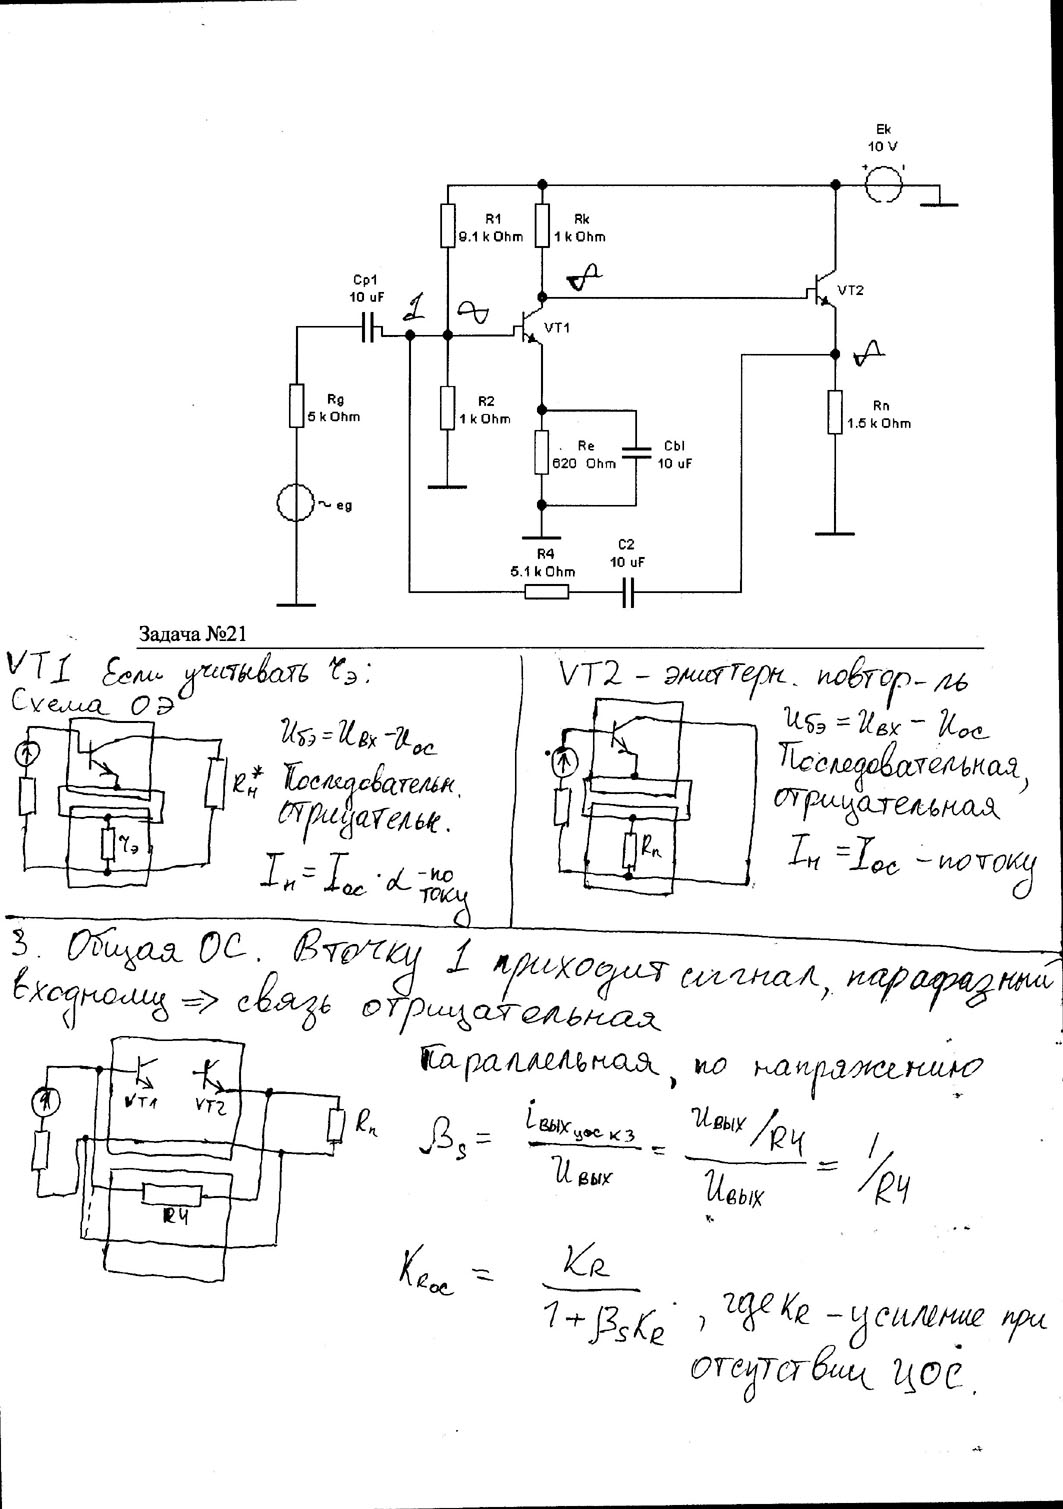 Ek
10 V
R1
9.1 k Ohm
Rk
1 k Ohm
Cp1
10 uF
1
VT1
VT2
Rg
5 k Ohm
R2
1 k Ohm
Re
620 Ohm
Cbl
10 uF
Rn
1.5 k Ohm
~ eg
R4
5.1 k Ohm
C2
10 uF
Задача №21
VT1 Если учитывать rэ:
Схема ОЭ
Uбэ = Uвх - Uос
Последовательн.
отрицательн.
Iн = Iос · α - по
току
Rн*
rэ
VT2 - эмиттерн. повтор-ль
Uбэ = Uвх - Uос
Последовательная,
отрицательная
Iн = Iос - по току
Rn
3. Общая ОС. В точку 1 приходит сигнал, парафазный
входному => связь отрицательная
Параллельная, по напряжению
VT1 VT2
Rn
R4
βs = iвых цос кз / Uвых = (Uвых / R4) / Uвых = 1/R4
KRос = KR / (1 + βsKR), где KR - усиление при
отсутствии ЦОС.